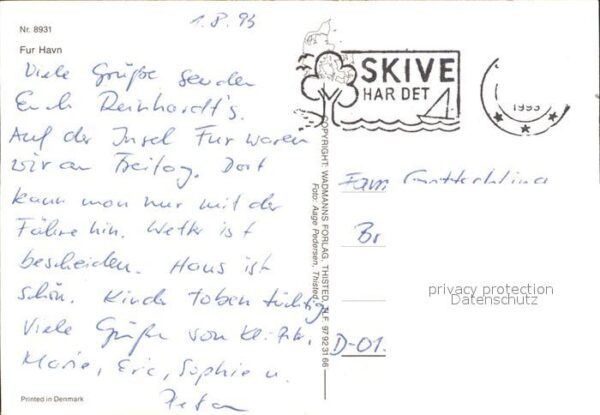 Nr. 8931
Fur Havn
1.8.93
Viele Grüße senden
Euch Reinhardt's.
Auf der Insel Fur waren
wir am Freitag. Dort
kann man nur mit der
Fähre hin. Wetter ist
bescheiden. Haus ist
schön. Kinder toben tüchtig
Viele Grüße von
Marie, Eric, Sophie u.
Peter
Printed in Denmark
COPYRIGHT: WADMANNS FORLAG, THISTED. TLF. 97 92 31 66
Foto: Aage Pedersen, Thisted.
SKIVE
HAR DET
1993
Fam.
Br
D-01
privacy protection
Datenschutz